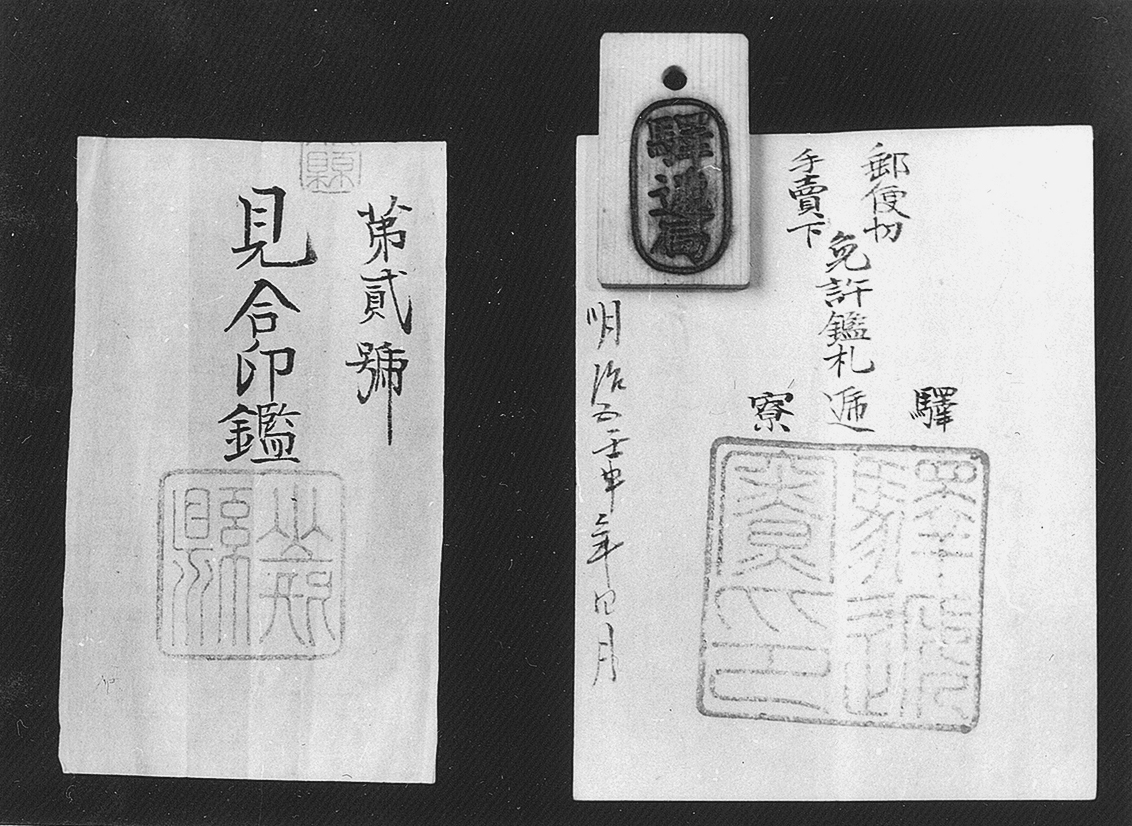 第貳號
見合印鑑
縣
縣
驛遞局
郵便切
手賣下
免許鑑札
驛遞寮
明治五壬申年四月
驛遞